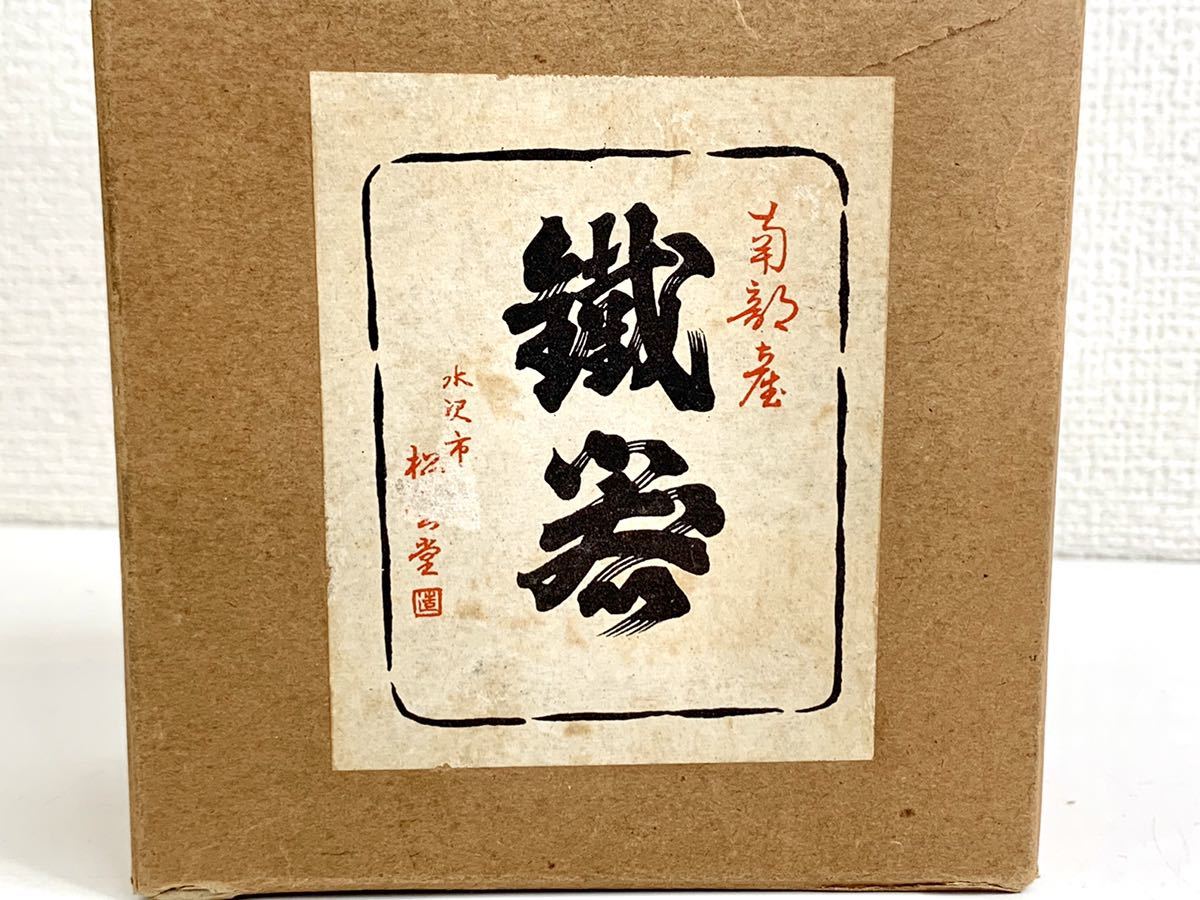 南部産
鐵器
水沢市
松 堂
造